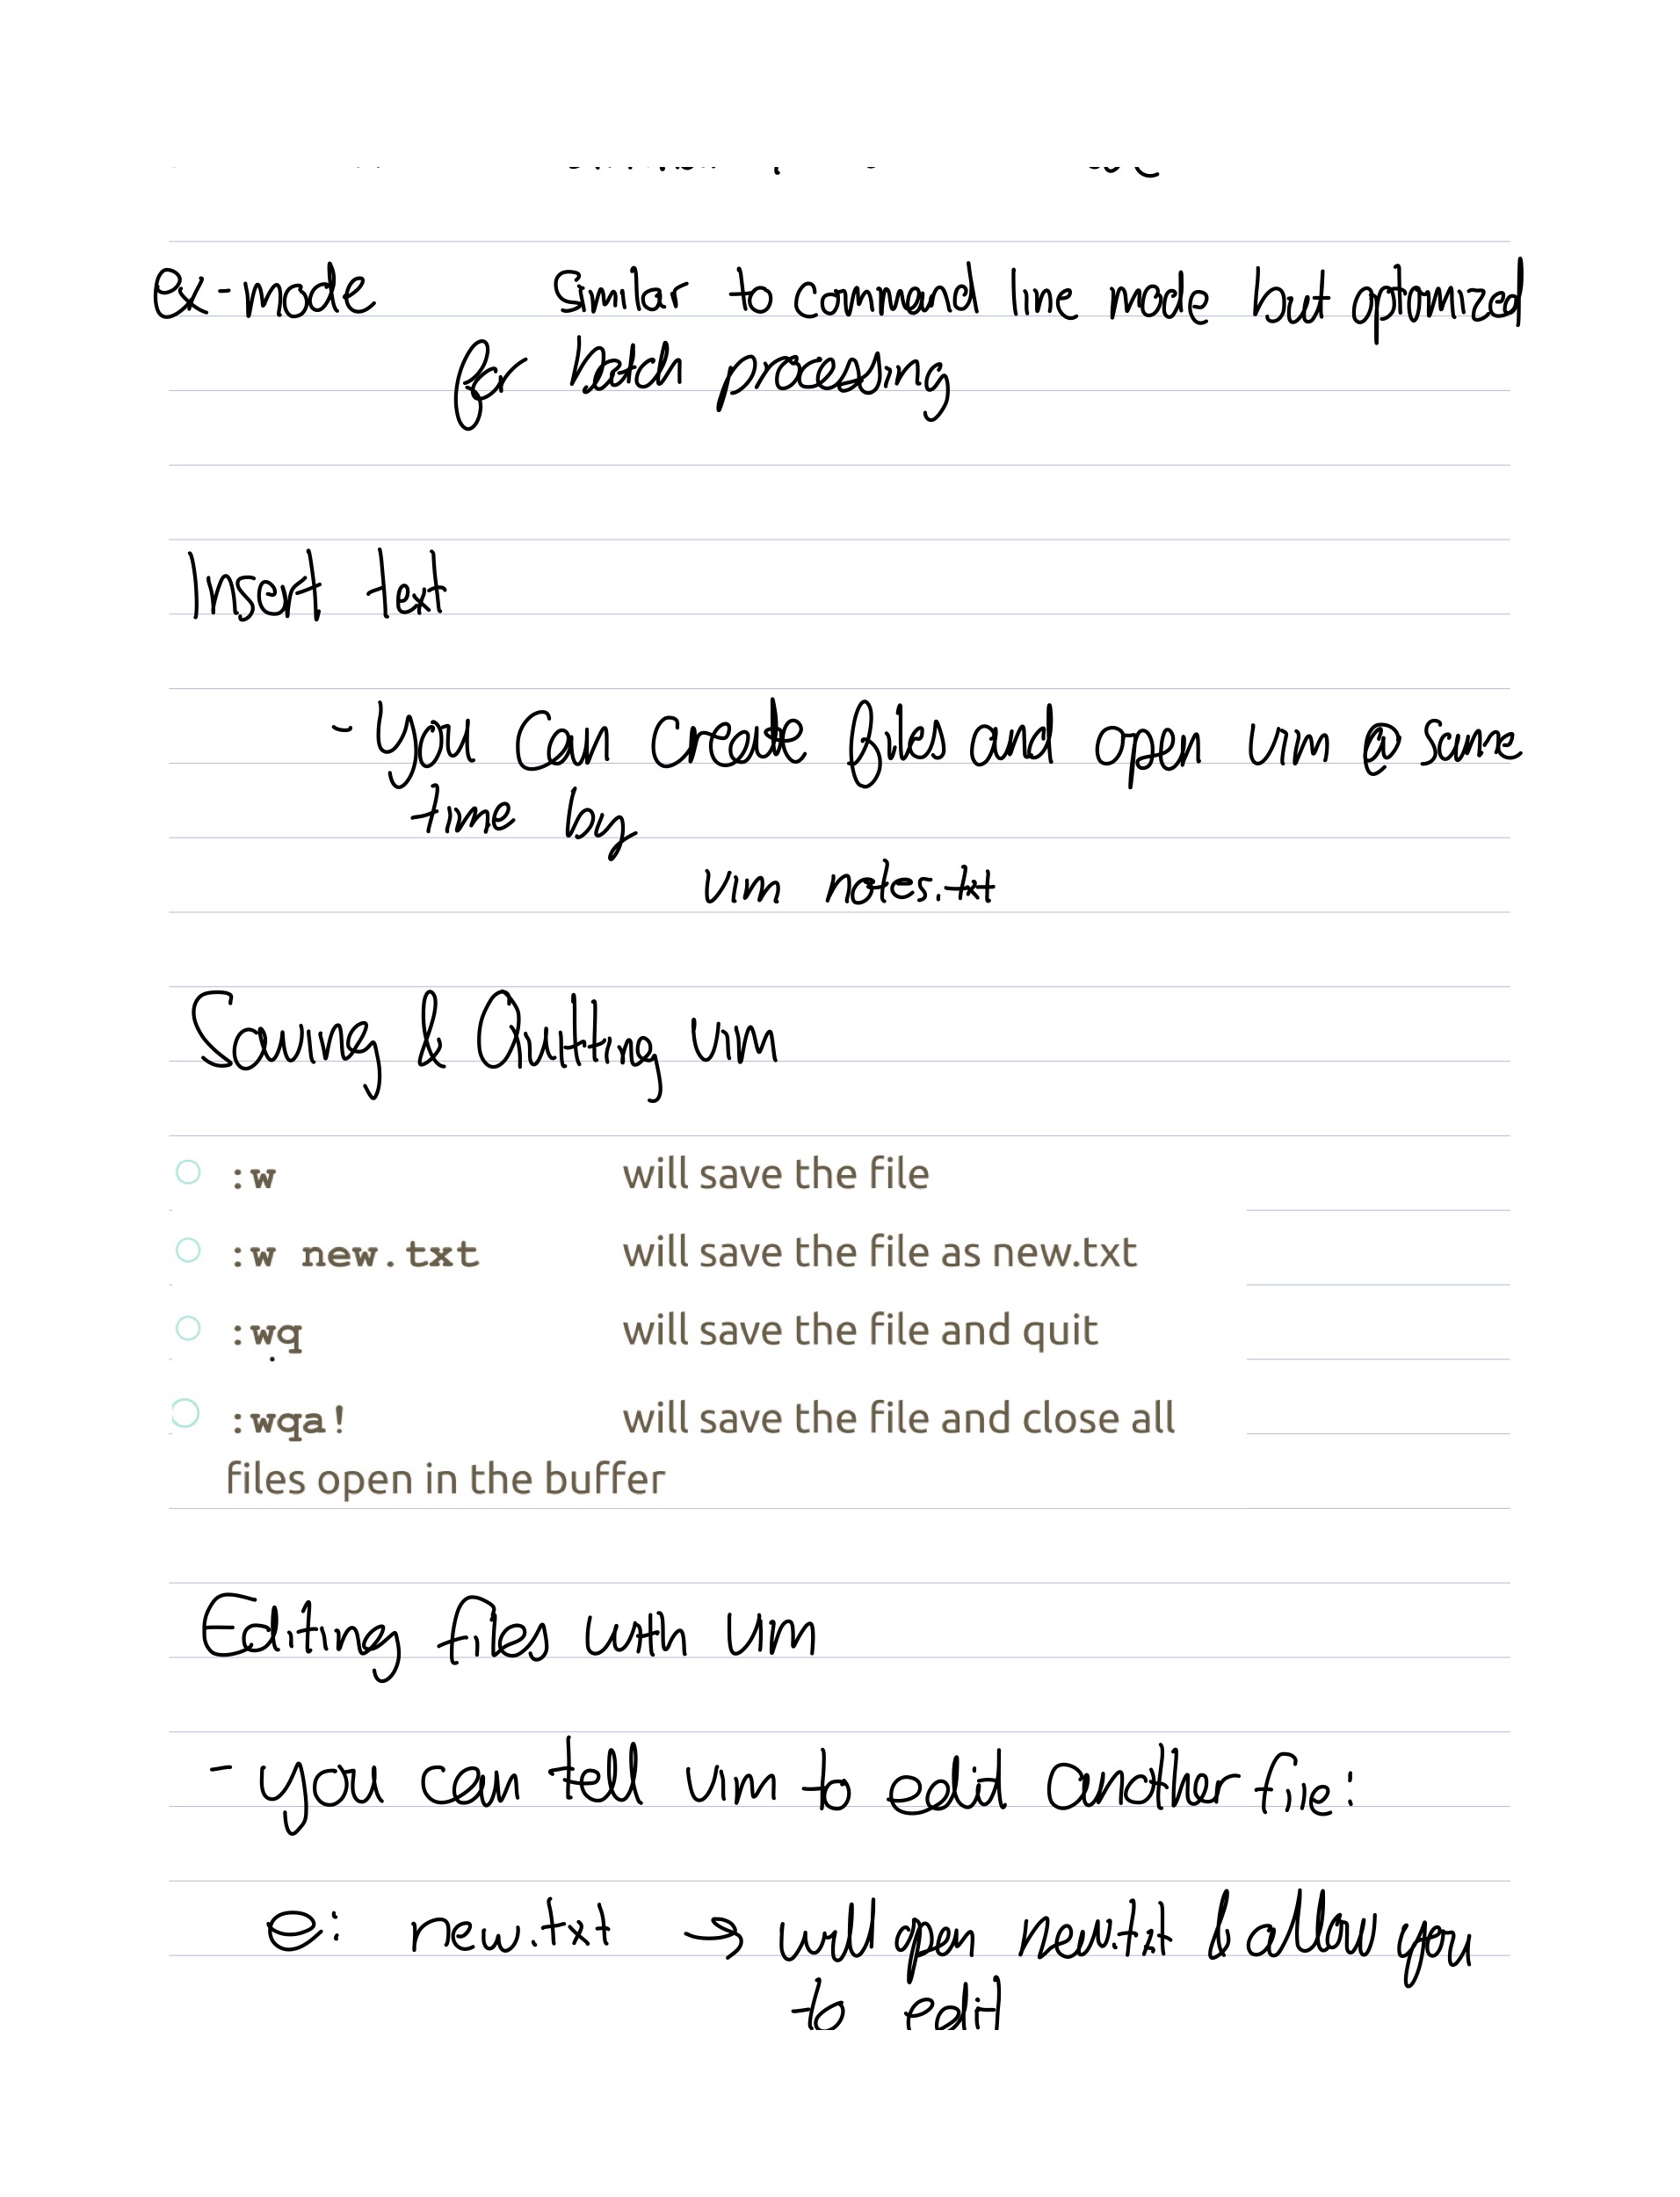 ex-mode similar to command line mode but optomized
for batch processing
Insert text
- You can create files and open vim @ same
time by
vim notes.txt
Saving & Quitting vim
:w will save the file
:w new.txt will save the file as new.txt
:wq will save the file and quit
:wqa! will save the file and close all
files open in the buffer
Editing files with vim
- you can tell vim to edit another file:
e: new.txt → will open new.txt & allow you
to edit